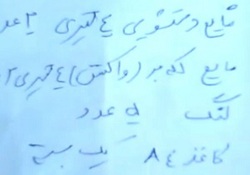 مایع دستشویی ٤ لیتری ٢ عدد
مایع کف بر (واکس) ٤ لیتری ٢
لنگ ۵ عدد
کاغذ A٤ یک بسته